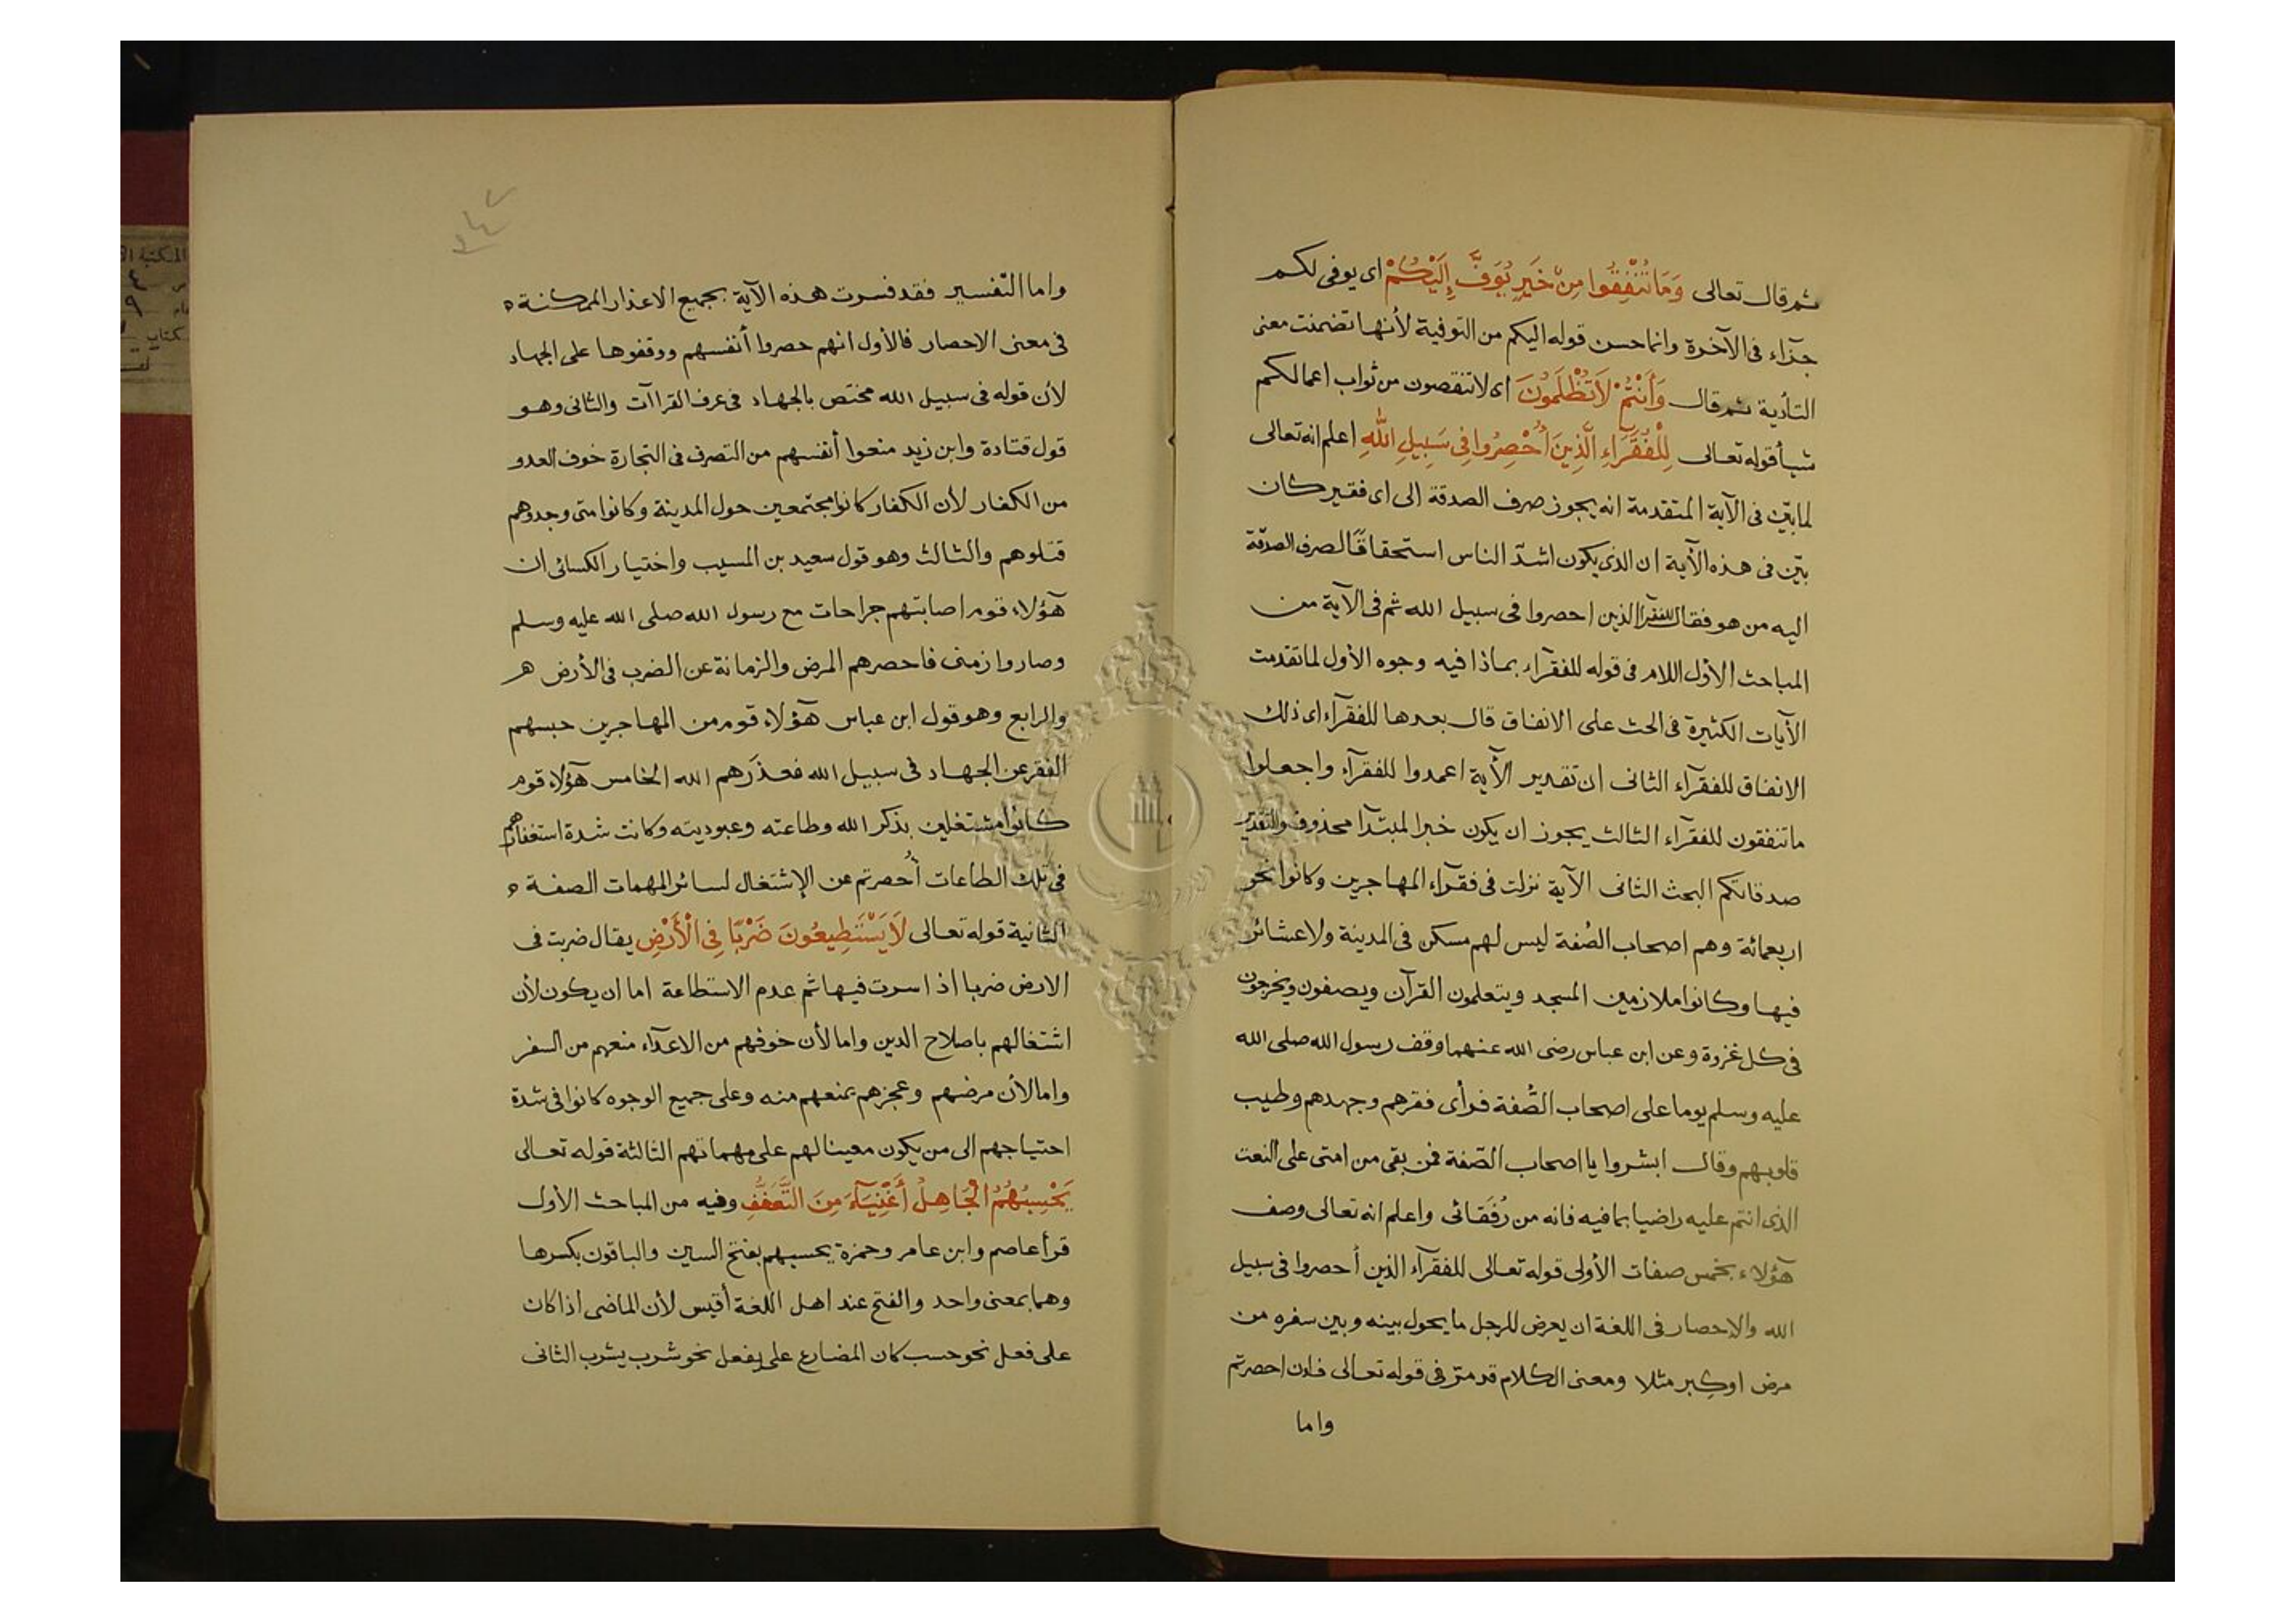 ثم قال تعالى وَمَا تُنْفِقُوا مِنْ خَيْرٍ يُوَفَّ إِلَيْكُمْ اى يوفى لكم
جزآء فى الآخرة وانما حسن قوله اليكم من التوفية لأنها تضمنت معنى
التأدية ثم قال وَأَنْتُمْ لَا تُظْلَمُونَ اى لا تنقصون من ثواب اعمالكم
شيأ قوله تعالى لِلْفُقَرَاءِ الَّذِينَ أُحْصِرُوا فِى سَبِيلِ اللَّهِ اعلم انه تعالى
لما بيّن فى الآية المتقدمة انه يجوز صرف الصدقة الى اى فقير كان
بيّن فى هذه الآية ان الذى يكون اشدّ الناس استحقاقًا لصرف الصدقة
اليه من هو فقال للفقرآ الذين احصروا فى سبيل الله ثم فى الآية من
المباحث الأول اللام فى قوله للفقرآء بماذا فيه وجوه الأول لما تقدمت
الآيات الكثيرة فى الحث على الانفاق قال بعدها للفقرآء اى ذلك
الانفاق للفقرآء الثانى ان تقدير الآية اعمدوا للفقرآء واجعلوا
ما تنفقون للفقرآء الثالث يجوز ان يكون خبرا لمبتدآ محذوف والتقدير
صدقاتكم البحث الثانى الآية نزلت فى فقرآء المهاجرين وكانوا نحو
اربعمائة وهم اصحاب الصُفة ليس لهم مسكن فى المدينة ولا عشائر
فيها وكانوا ملازمين المسجد ويتعلمون القرآن ويصفون ويخرجون
فى كل غزوة وعن ابن عباس رضى الله عنهما وقف رسول الله صلى الله
عليه وسلم يوما على اصحاب الصُّفة فرأى فقرهم وجهدهم وطيب
قلوبهم وقال ابشروا يا اصحاب الصّفة فمن بقى من امتى على النعت
الذى انتم عليه راضيا بما فيه فانه من رُفَقائى واعلم انه تعالى وصف
هؤلاء بخمس صفات الأولى قوله تعالى للفقرآء الذين أحصروا فى سبيل
الله والإحصار فى اللغة ان يعرض للرجل ما يحول بينه وبين سفره من
مرض اوكِبر مثلا ومعنى الكلام قد مرّ فى قوله تعالى فان احصرتم
واما
واما التّفسير فقد فسرت هذه الآية بجميع الاعذار الممكنة
فى معنى الاحصار فالأول انهم حصروا أنفسهم ووقفوها على الجهاد
لأن قوله فى سبيل الله مختص بالجهاد فى عرف القراآت والثانى وهو
قول قتادة وابن زيد منعوا أنفسهم من التصرف فى التجارة خوف العدو
من الكفار لأن الكفار كانوا مجتمعين حول المدينة وكانوا متى وجدوهم
قتلوهم والثالث وهو قول سعيد بن المسيب واختيار الكسائى ان
هؤلاء قوم اصابتهم جراحات مع رسول الله صلى الله عليه وسلم
وصاروا زمنى فاحصرهم المرض والزمانة عن الضرب فى الأرض
والرابع وهو قول ابن عباس هؤلاء قوم من المهاجرين حبسهم
الفقر عن الجهاد فى سبيل الله فعذرَهم الله الخامس هؤلاء قوم
كانوا مشتغلين بذكر الله وطاعته وعبوديته وكانت شدة استغفارهم
فى تلك الطاعات أُحصرتم عن الإشتغال لسائر المهمات الصفة
الثانية قوله تعالى لَا يَسْتَطِيعُونَ ضَرْبًا فِى الْأَرْضِ يقال ضربت فى
الارض ضربا اذا سرت فيها ثم عدم الاستطاعة اما ان يكون لأن
اشتغالهم باصلاح الدين واما لأن خوفهم من الاعدآء منعهم من السفر
واما لأن مرضهم وعجزهم يمنعهم منه وعلى جميع الوجوه كانوا فى شدة
احتياجهم الى من يكون معينا لهم على مهماتهم الثالثة قوله تعالى
يَحْسِبُهُمُ الْجَاهِلُ أَغْنِيَآءَ مِنَ التَّعَفُّفِ وفيه من المباحث الأول
قرأ عاصم وابن عامر وحمزة يحسبهم بفتح السين والباقون بكسرها
وهما بمعنى واحد والفتح عند اهل اللغة أقيس لأن الماضى اذا كان
على فعل نحو حسب كان المضارع على يفعل نحو شرب يشرب الثانى